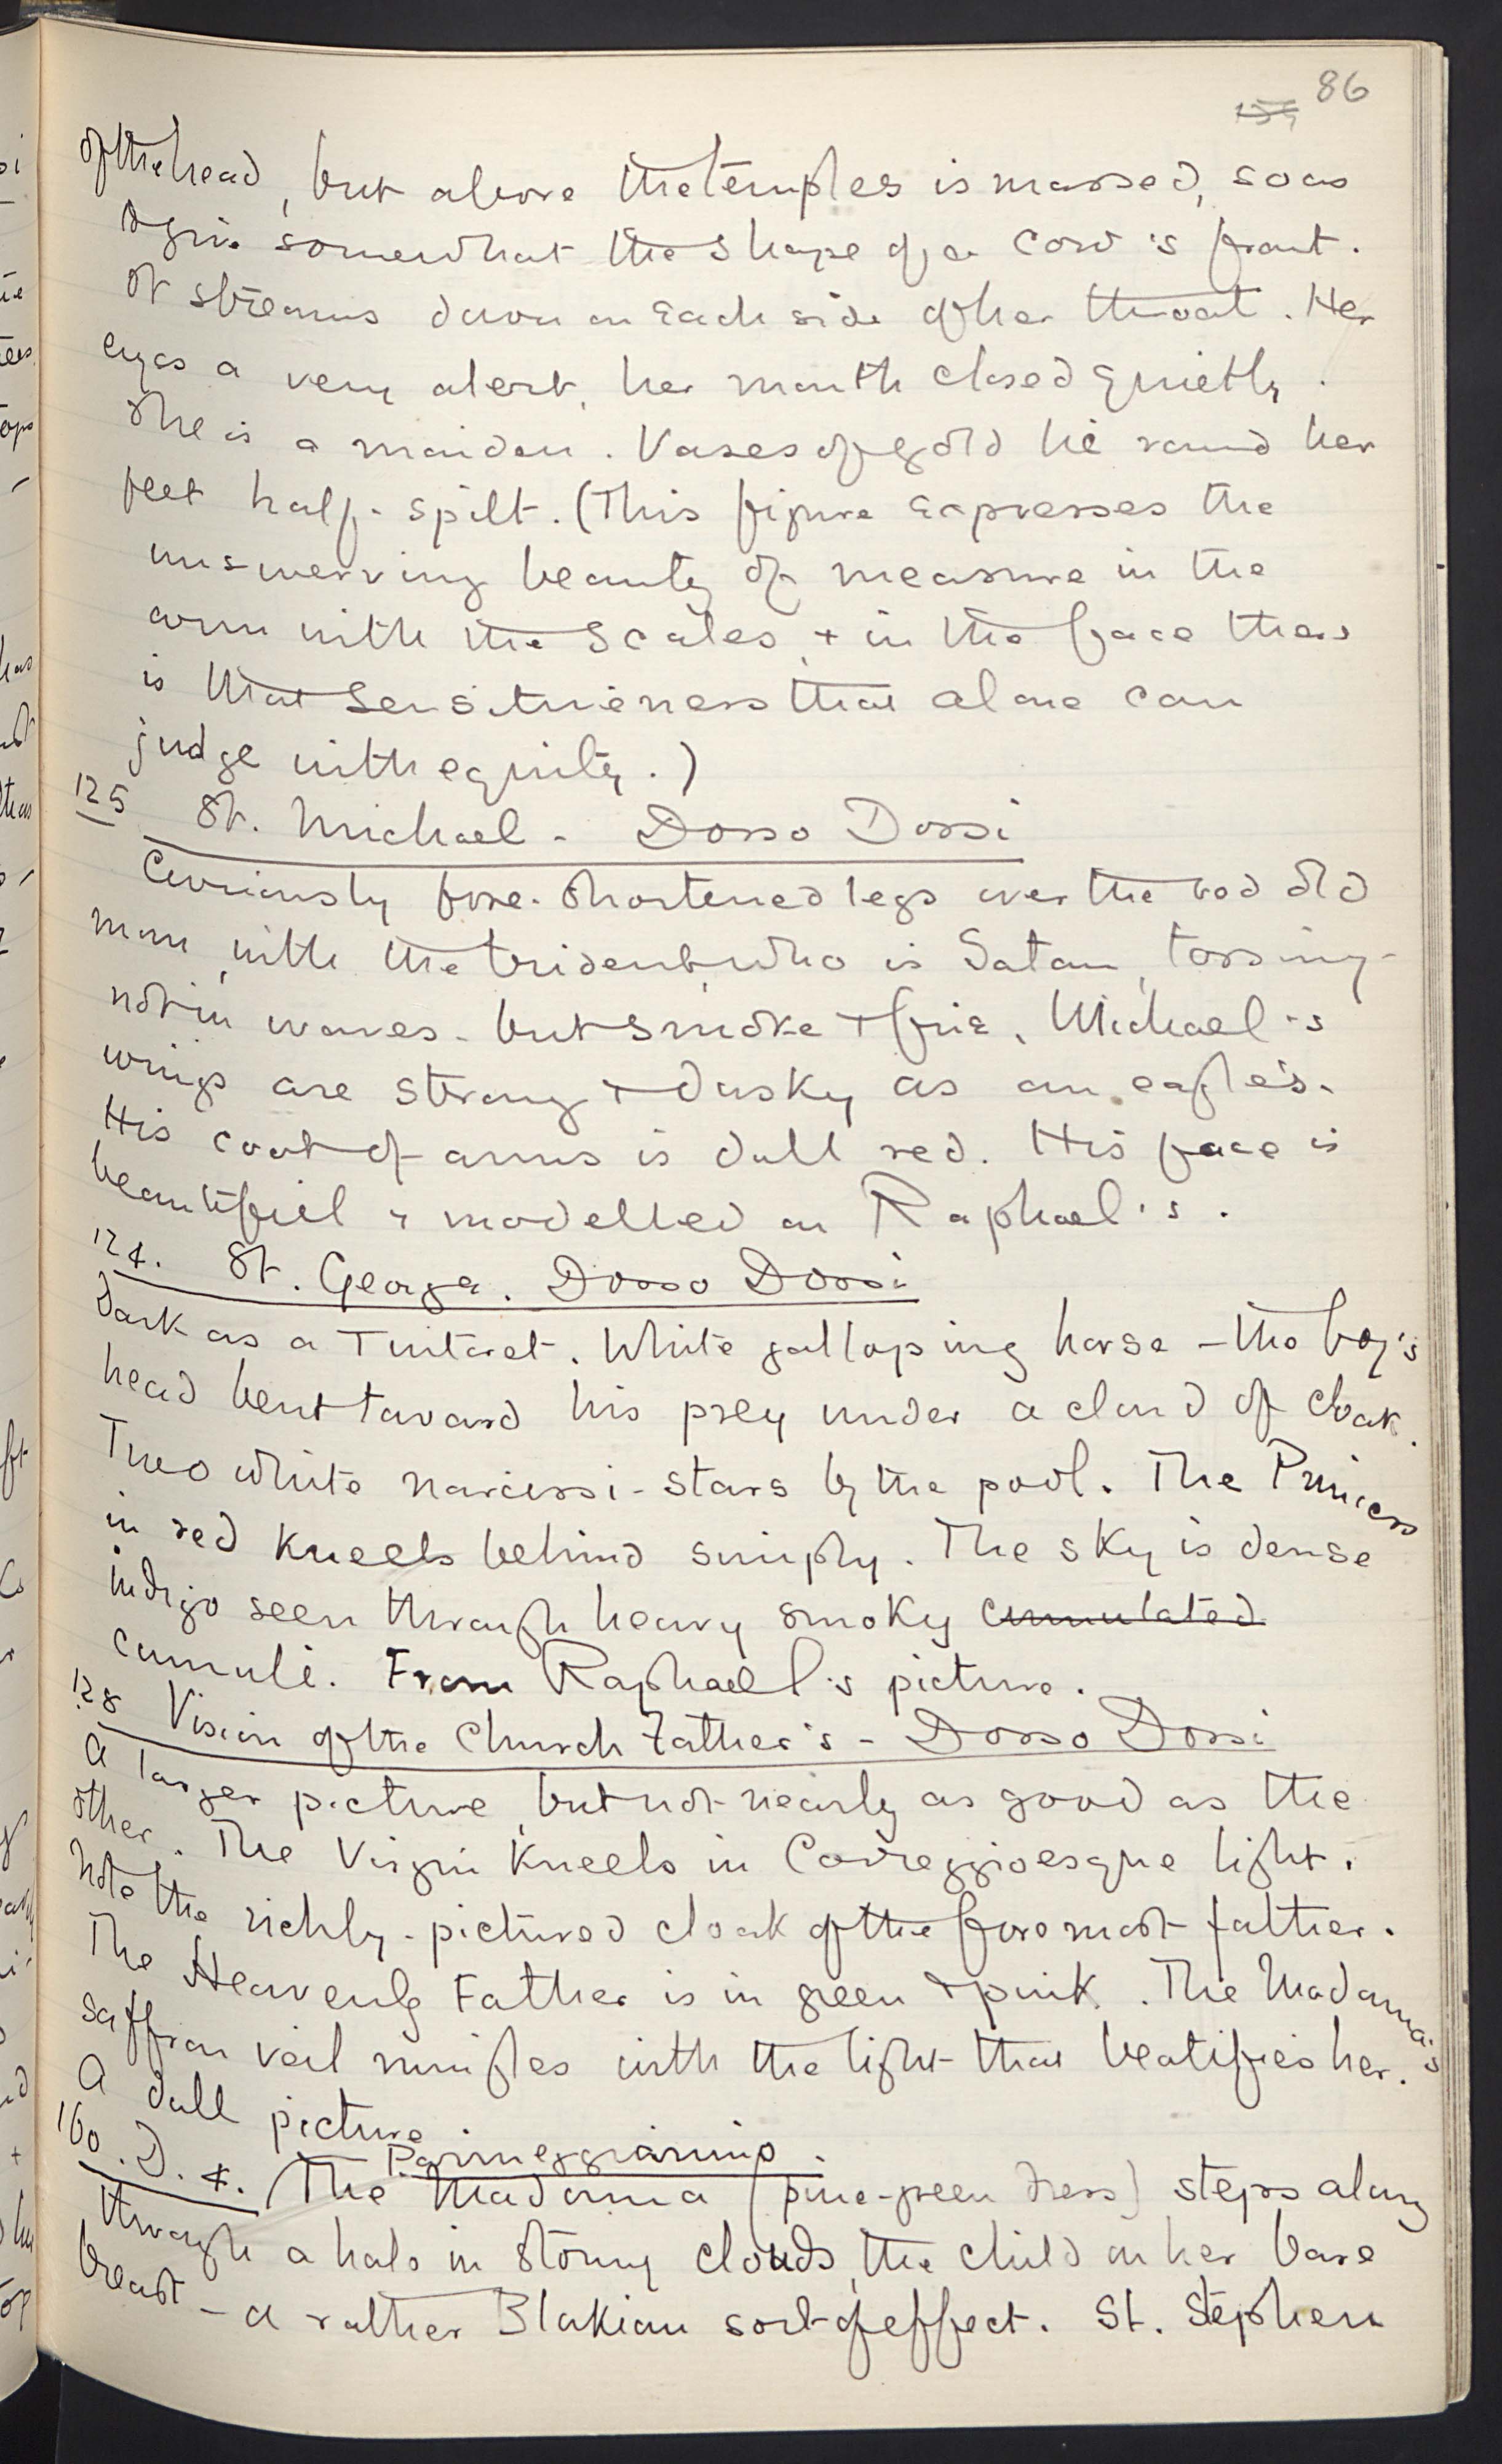 86
of the head, but above the temples is massed, so as
to give somewhat the shape of a cow's front.
It streams down on each side of her throat. Her
eyes a very alert, her mouth closed quietly.
She is a maiden. Vases of gold lie round her
feet half-spilt. (This figure expresses the
unswerving beauty of measure in the
arm with the scales, + in the face there
is that sensitiveness that alone can
judge with equity.)
125 St. Michael - Dosso Dossi
Curiously fore-shortened legs over the red old
man, with the trident, who is Satan, tossing -
not in waves - but smoke + fire. Michael's
wings are strong + dusky as an eagle's.
His coat-of-arms is dull red. His face is
beautiful & modelled on Raphael's.
124. St. George. Dosso Dossi
Dark as a Tintoret. White galloping horse - the boy's
head bent toward his prey under a cloud of cloak.
Two white narcissi-stars by the pool. The Princess
in red kneels behind simply. The sky is dense
indigo seen through heavy smoky cumulated
cumuli. From Raphael's picture.
128 Vision of the Church Father's - Dosso Dossi
A larger picture, but not nearly as good as the
other. The Virgin kneels in Correggioesque light.
Note the richly-pictured cloak of the foremost father.
The Heavenly Father is in green & pink. The Madonna's
saffron veil mingles with the light that beatifies her.
A dull picture
Parmeggianino.
160. D. 4. The Madonna (pine-green dress) steps along
through a halo in stormy clouds, the child on her bare
breast - a rather Blakian sort of effect. St. Stephen